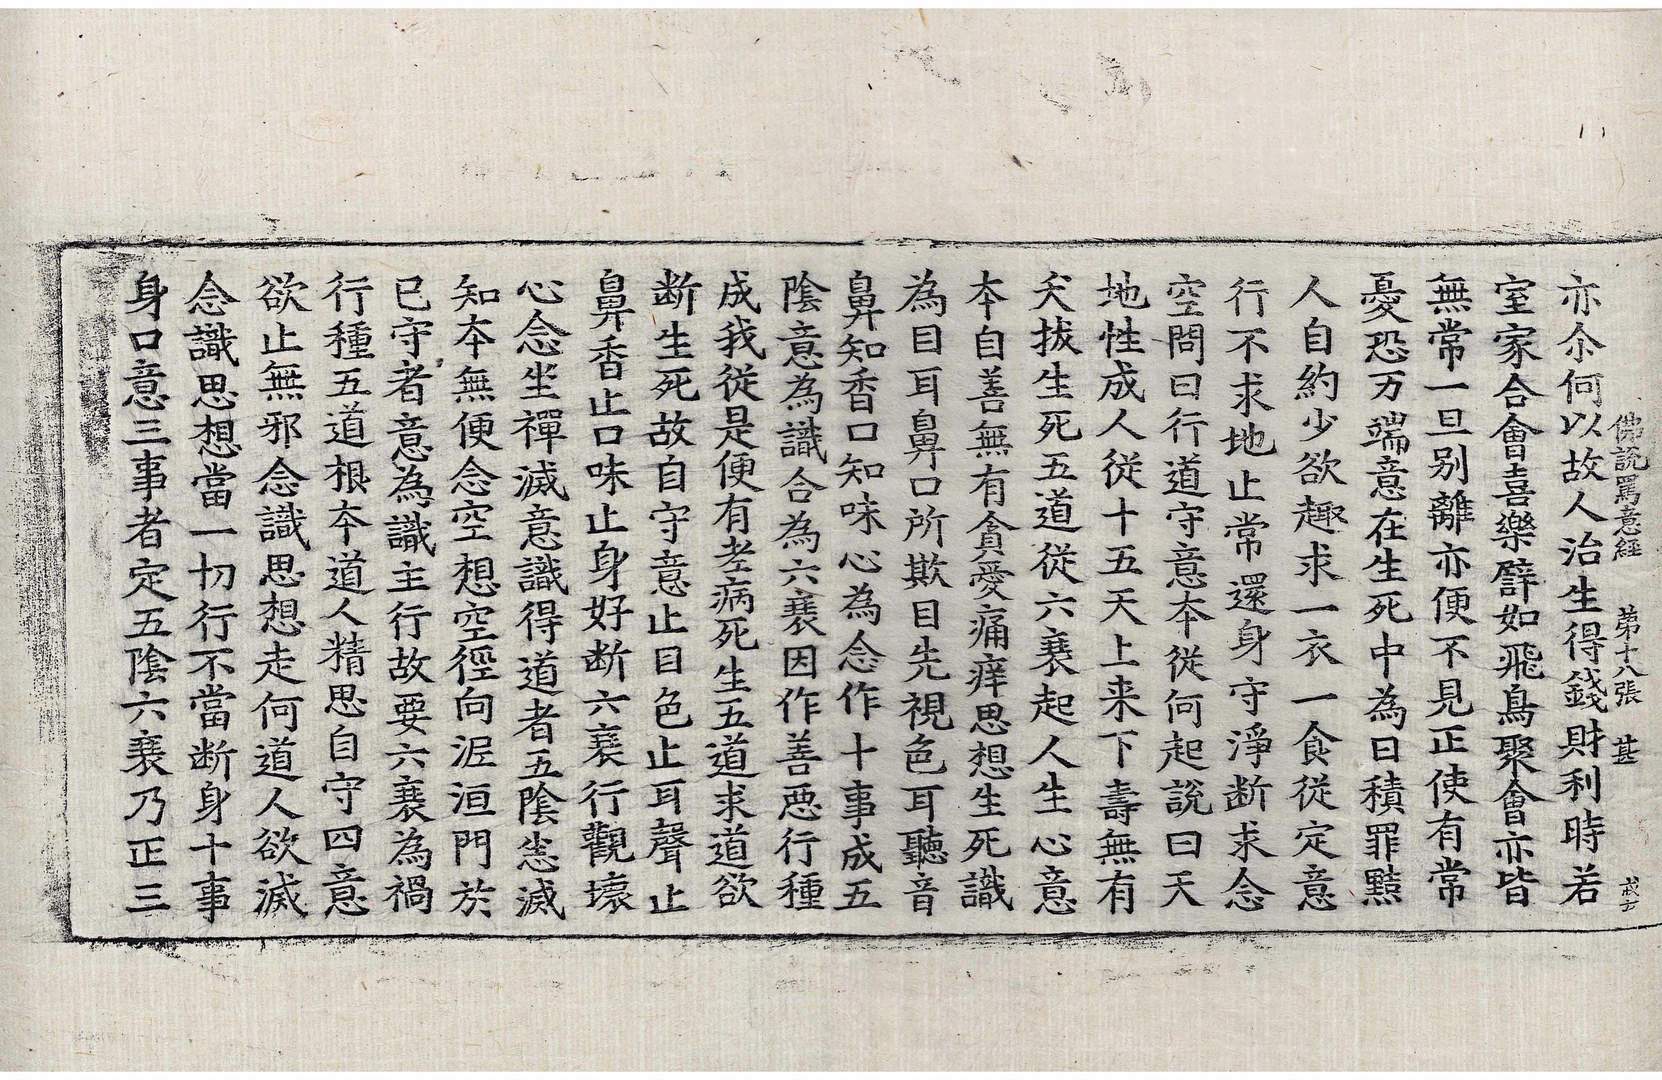 佛說罵意經 第十八張 甚
亦尒何以故人治生得錢財利時若
室家合會喜樂譬如飛鳥聚會亦皆
無常一旦别離亦便不見正使有常
憂恐万端意在生死中為日積罪黠
人自約少欲趣求一衣一食從定意
行不求地止常還身守淨断求念
空問曰行道守意本從何起說曰天
地性成人從十五天上来下壽無有
矣拔生死五道從六衰起人生心意
本自善無有貪愛痛痒思想生死識
為目耳鼻口所欺目先視色耳聽音
鼻知香口知味心為念作十事成五
陰意為識合為六衰因作善惡行種
成我從是便有老病死生五道求道欲
断生死故自守意止目色止耳聲止
鼻香止口味止身好断六衰行觀壞
心念坐禪滅意識得道者五陰恙滅
知本無便念空想空徑向泥洹門於
已守者意為識主行故要六衰為禍
行種五道根本道人精思自守四意
欲止無邪念識思想走何道人欲滅
念識思想當一切行不當断身十事
身口意三事者定五陰六衰乃正三